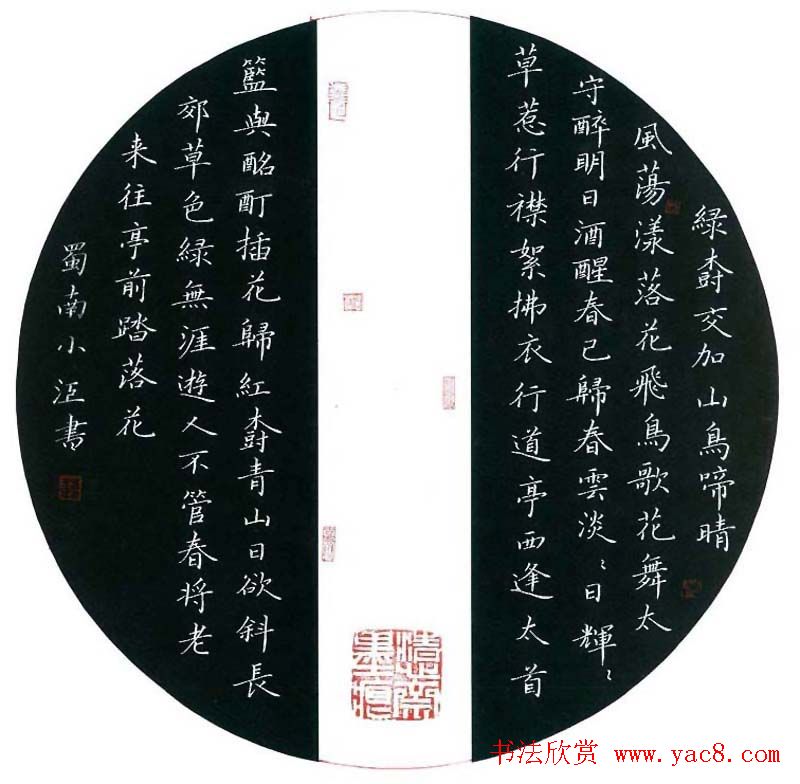 緑樹交加山鳥啼晴
風蕩漾落花飛鳥歌花舞太
守醉明日酒醒春已歸春雲淡〻日輝〻
草惹行襟絮拂衣行道亭西逢太首
籃與酩酊插花歸紅樹青山日欲斜長
郊草色緑無涯遊人不管春将老
来往亭前踏落花
蜀南小書
书法欣赏 www.yac8.com